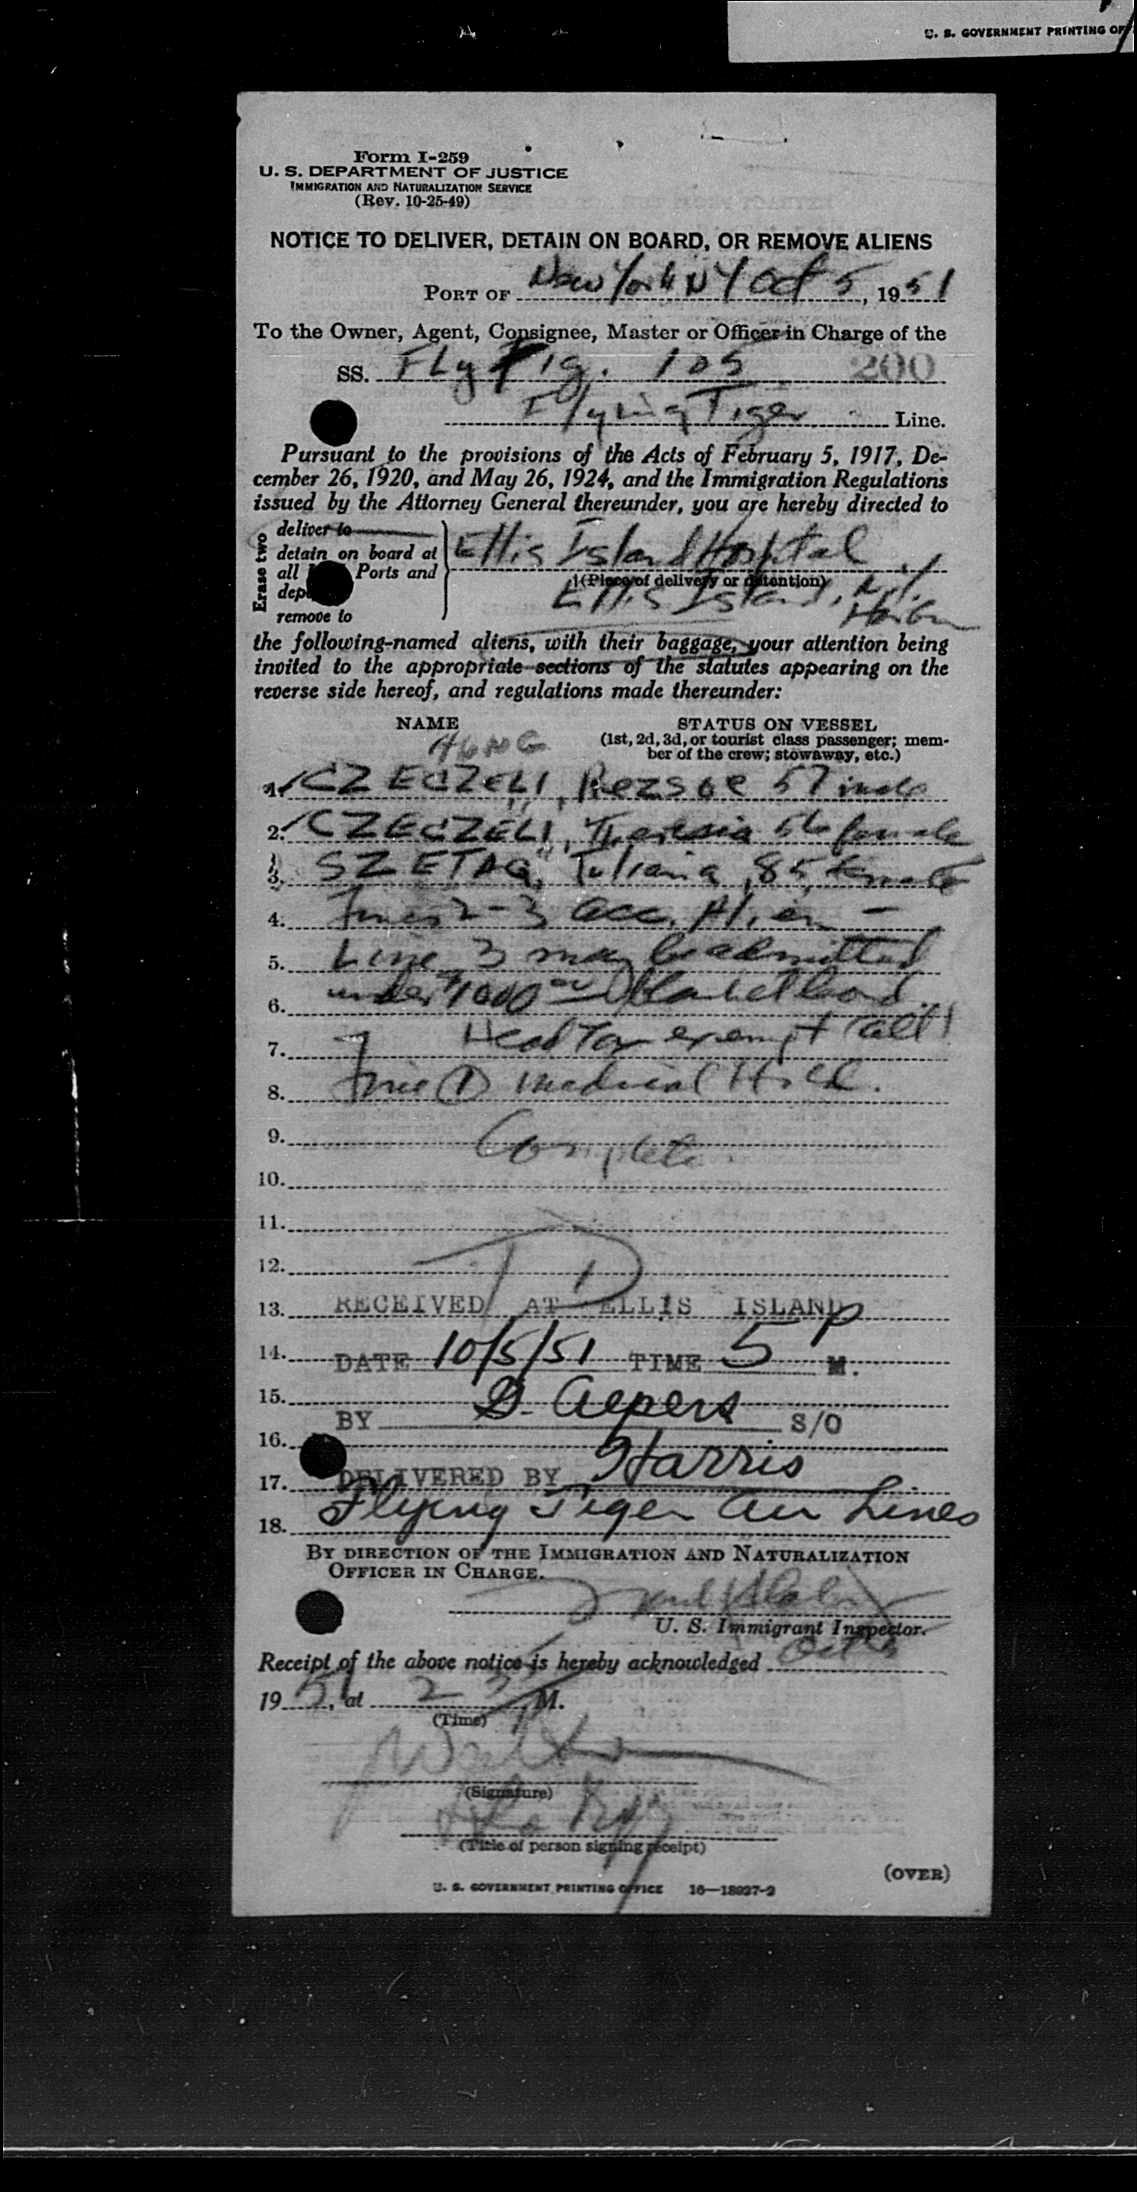 U. S. GOVERNMENT PRINTING OF
Form I-259
U. S. DEPARTMENT OF JUSTICE
IMMIGRATION AND NATURALIZATION SERVICE
(Rev. 10-25-49)
NOTICE TO DELIVER, DETAIN ON BOARD, OR REMOVE ALIENS
PORT OF New York NY Oct 5, 1951
To the Owner, Agent, Consignee, Master or Officer in Charge of the
SS. Fly Tig. 105 200
Flying Tiger Line.
Pursuant to the provisions of the Acts of February 5, 1917, De-
cember 26, 1920, and May 26, 1924, and the Immigration Regulations
issued by the Attorney General thereunder, you are hereby directed to
Erase two
deliver to
detain on board at Ellis Island Hospital
all Ports and (Place of delivery or detention)
Ellis Island, N.Y.
remove to
the following-named aliens, with their baggage, your attention being
invited to the appropriate sections of the statutes appearing on the
reverse side hereof, and regulations made thereunder:
NAME STATUS ON VESSEL
HUNG (1st, 2d, 3d, or tourist class passenger; mem-
ber of the crew; stowaway, etc.)
1. CZECZELI, Rezsoe 57 male
2. CZECZELI, Theresia 56 female
3. SZETAG, Juliana, 85, female
4. Lines 2-3 acc. Alien -
5. Line 3 may be admitted
6. under $1000 00 blanket bond
7. Head Tax exempt (all)
8. Line 1 medical Hold.
9. Complete
10.
11.
12. TD
13. RECEIVED AT ELLIS ISLAND
14. DATE 10/5/51 TIME 5 P M.
15.
BY G. Aepers S/O
16.
17. DELIVERED BY Harris
18. Flying Tiger Air Lines
BY DIRECTION OF THE IMMIGRATION AND NATURALIZATION
OFFICER IN CHARGE.
U. S. Immigrant Inspector.
Receipt of the above notice is hereby acknowledged Oct 5
1951, at 2 35 P M.
(Time)
(Signature)
(Title of person signing receipt)
(OVER)
U. S. GOVERNMENT PRINTING OFFICE 16—18927-2